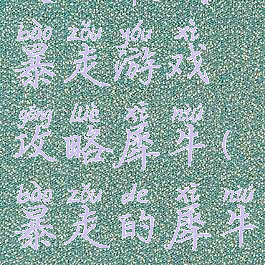 bào zǒu yóu xì
暴走游戏
gōng lüè xī niú
攻略犀牛(
bào zǒu de xī niú
暴走的犀牛